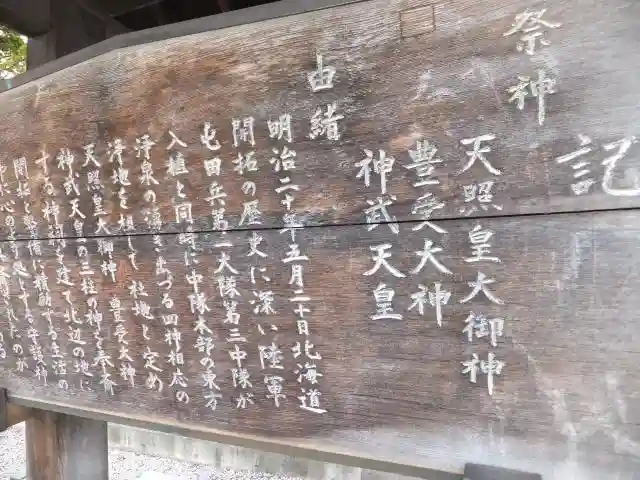 記
祭神
天照皇大御神
豊受大神
神武天皇
由緒
明治二十年五月二十日北海道
開拓の歴史に深い陸軍
屯田兵第一大隊第三中隊が
入植と同時に中隊本部の東方
浄泉の湧き出づる四神相応の
浄地を相して社地と定め
天照皇大御神 豊受大神
神武天皇の三柱の神を奉斎
する神祠を建て北辺の地に
開拓と警備に積動する生活の